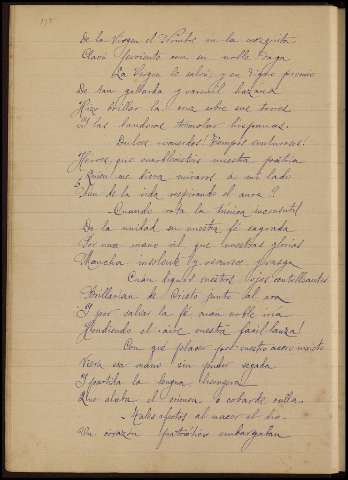 De la Virgen el Nombre en la mezquita
Clavó ferviente con su noble daga
La Virgen le salvó, y en digno premio
De tan gallarda y varonil hazaña
Hizo brillar la cruz sobre sus torres
Y las banderas tremolar hispanas.
Dulces recuerdos! Tiempos venturosos!
Heroes que enaltecisteis nuestra patria
¡Quien me diera miraros a mi lado
Aun de la vida respirando el aura!
Cuando rota la túnica inconsútil
De la unidad en nuestra fé sagrada
Por una mano vil, que vuestras glorias
Mancha insolente y
Cuan dignos vuestros ojos centelleantes
Brillarian de Cristo junto al ara
Y por salvar la fé con noble ira
Hendiendo el aire vuestra facil lanza!
Con qué placer por vuestro acero invicto
Viera esa mano sin poder segada
Y partida la lengua
Que alaba el crimen o cobarde calla.
Tales afectos al nacer el dia
Un corazón patriótico embargaban